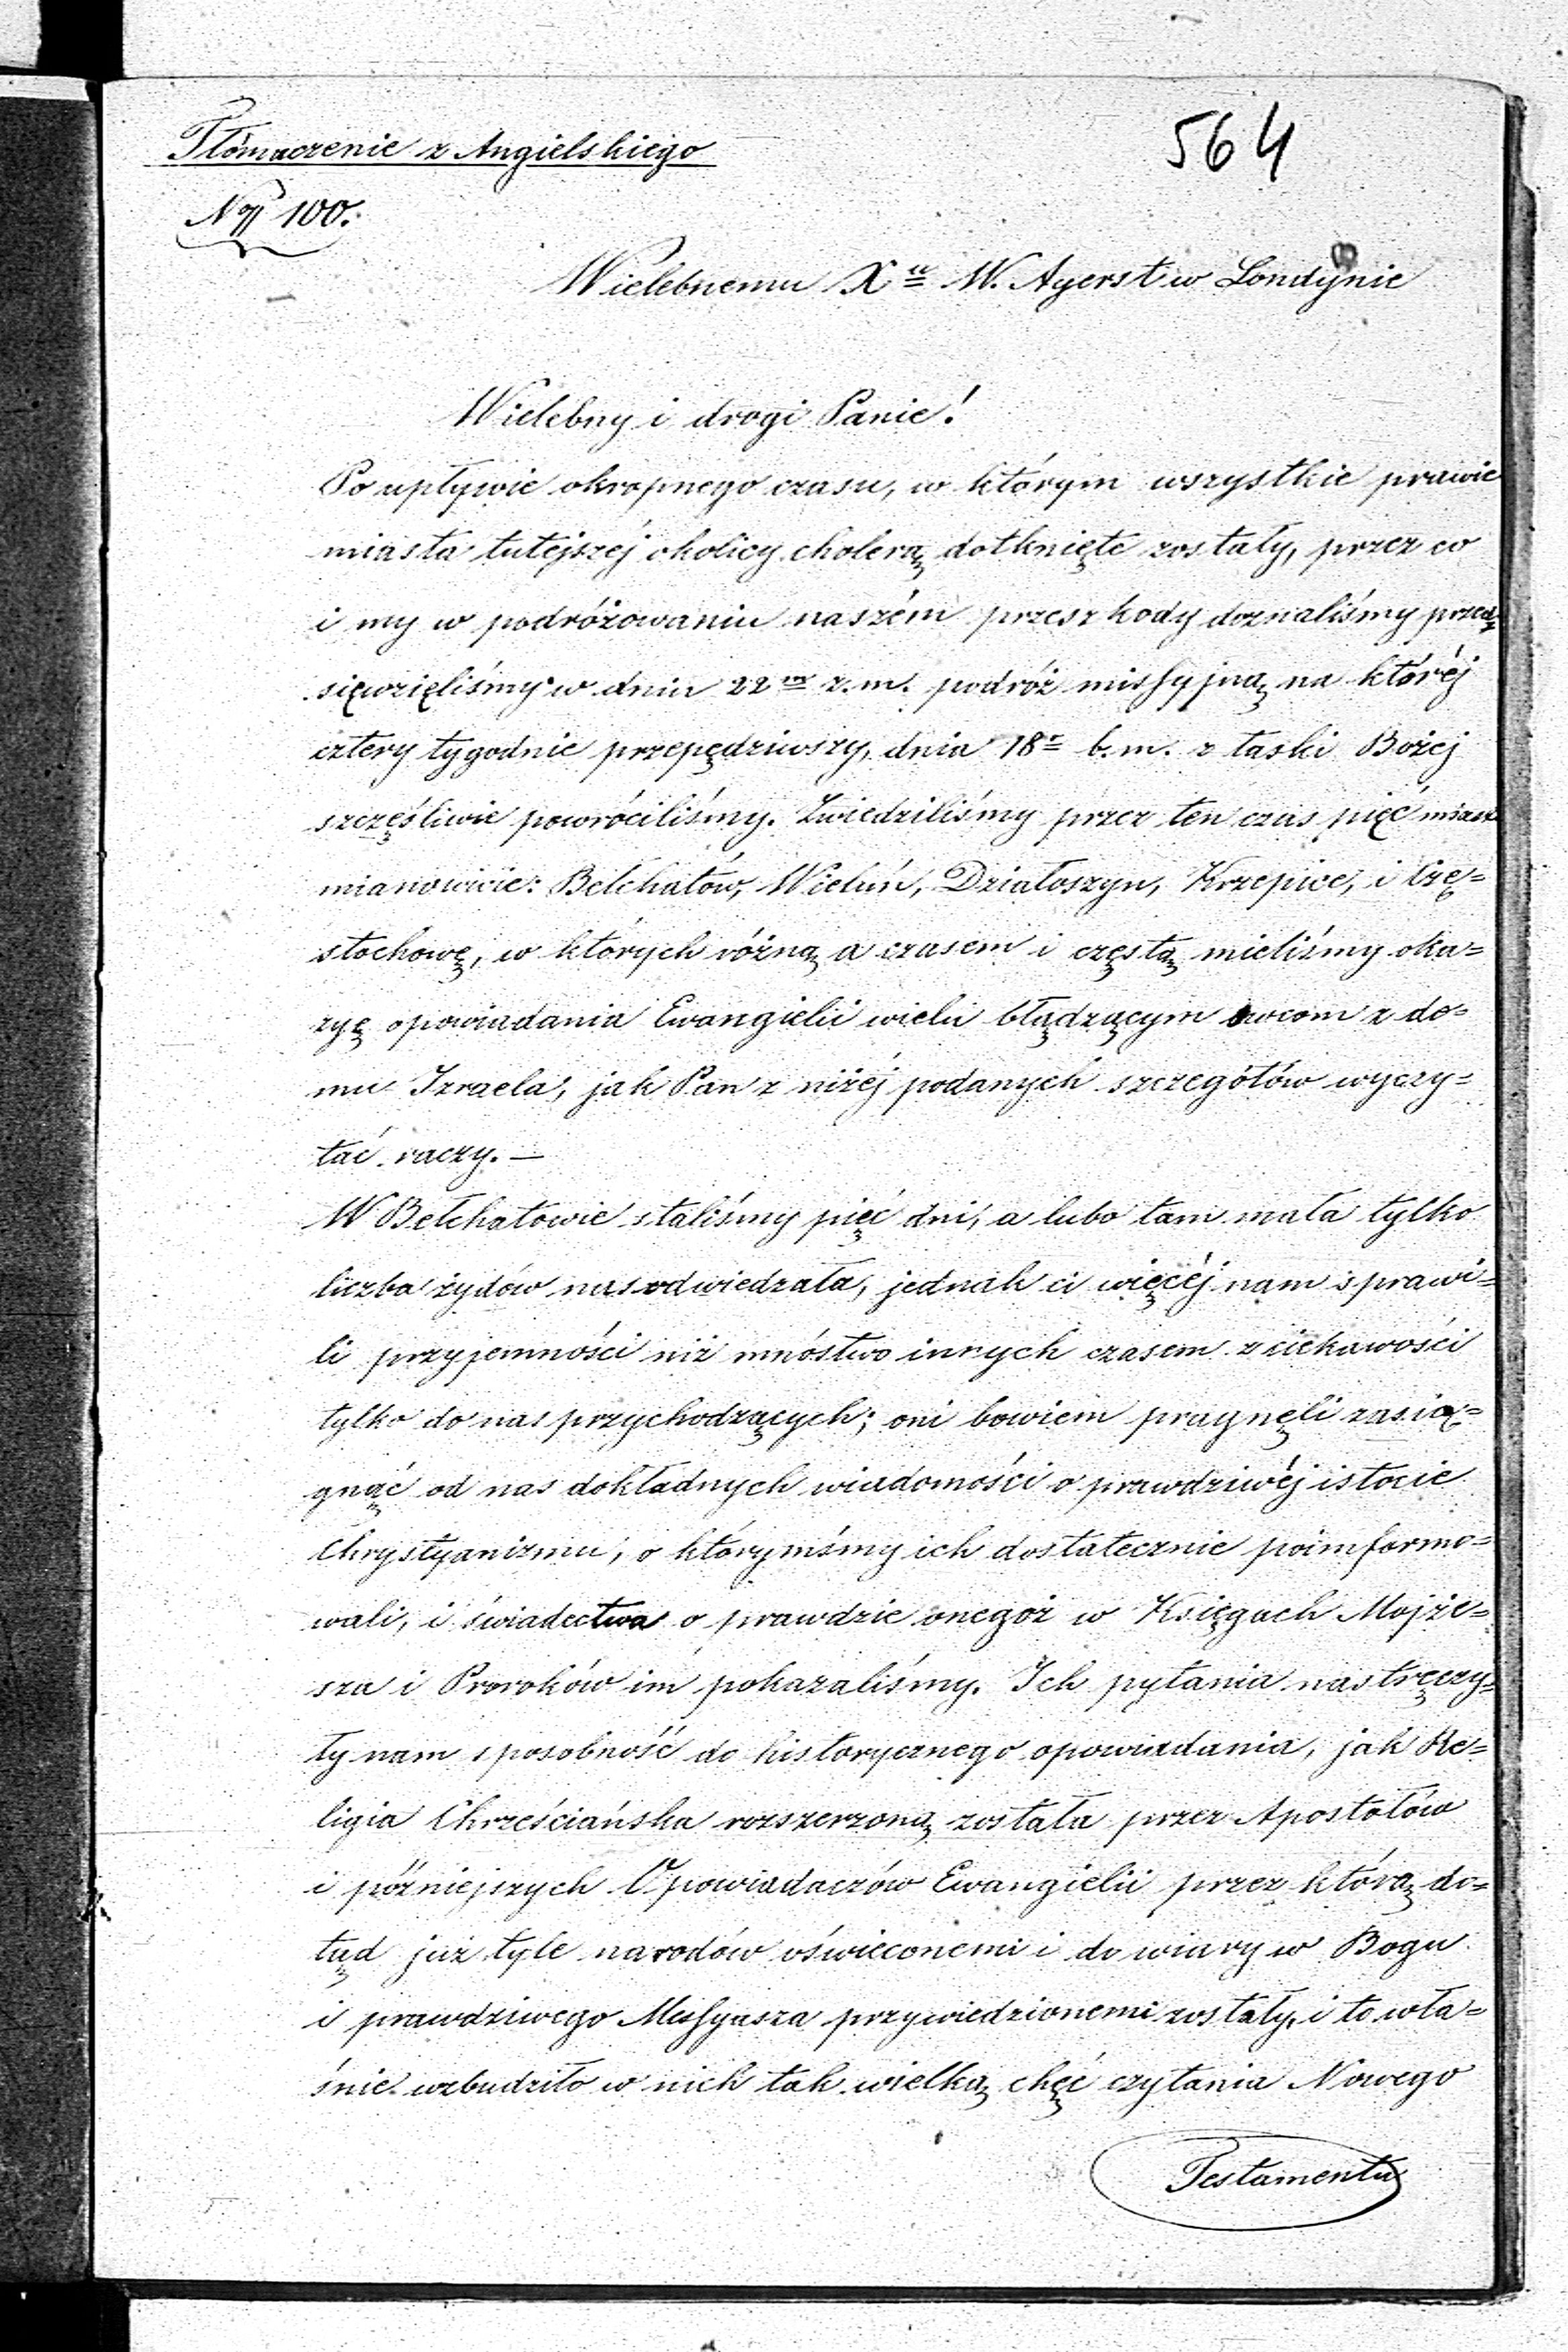 Tłómaczenie z Angielskiego
564
No 100.
Wielebnemu Xu W. Ayerst w Londynie
Wielebny i drogi Panie!
Po upływie okropnego czasu, w którym wszystkie prawie
miasta tutejszéj okolicy cholerą dotknięte zostały, przez co
i my w podróżowaniu naszém przeszkody doznaliśmy przed=
sięwzięliśmy w dniu 22m z.m. podróż missyjną na któréj
cztery tygodnie przepędziwszy, dnia 18o b.m. z łaski Bożej
szczęśliwie powróciliśmy. Zwiedziliśmy przez ten czas pięć miast
mianowicie: Bełchatów, Wieluń, Działoszyn, Krzepice, i Czę=
stochowę, w których różną a czasem i częstą mieliśmy oka=
zyę opowiadania Ewangielii wielu błądzącym owcom z do=
mu Izraela, jak Pan z niżéj podanych szczegółów wyczy=
tać raczy. —
W Bełchatowie staliśmy pięć dni, a lubo tam mała tylko
liczba żydów nas odwiedzała, jednak ci więcéj nam sprawi=
li przyjemności niż mnóstwo innych czasem z ciekawości
tylko do nas przychodzących; oni bowiem pragnęli zasią=
gnąć od nas dokładnych wiadomości o prawdziwéj istocie
Chrystyanizmu, o którymśmy ich dostatecznie poimformo=
wali, i świadectwa o prawdzie onegoż w Księgach Mojże=
sza i Proroków im pokazaliśmy. Ich pytania nastręczy=
ły nam sposobność do historycznego opowiadania, jak Re=
ligia Chrześciańska rozszerzoną została przez Apostołów
i późniejszych Opowiadaczów Ewangielii przez którą do=
tąd już tyle narodów oświeconemi i do wiary w Boga
i prawdziwego Messyasza przywiedzionemi zostały, i to wła=
śnie wzbudziło w nich tak wielką chęć czytania Nowego
Testamentu